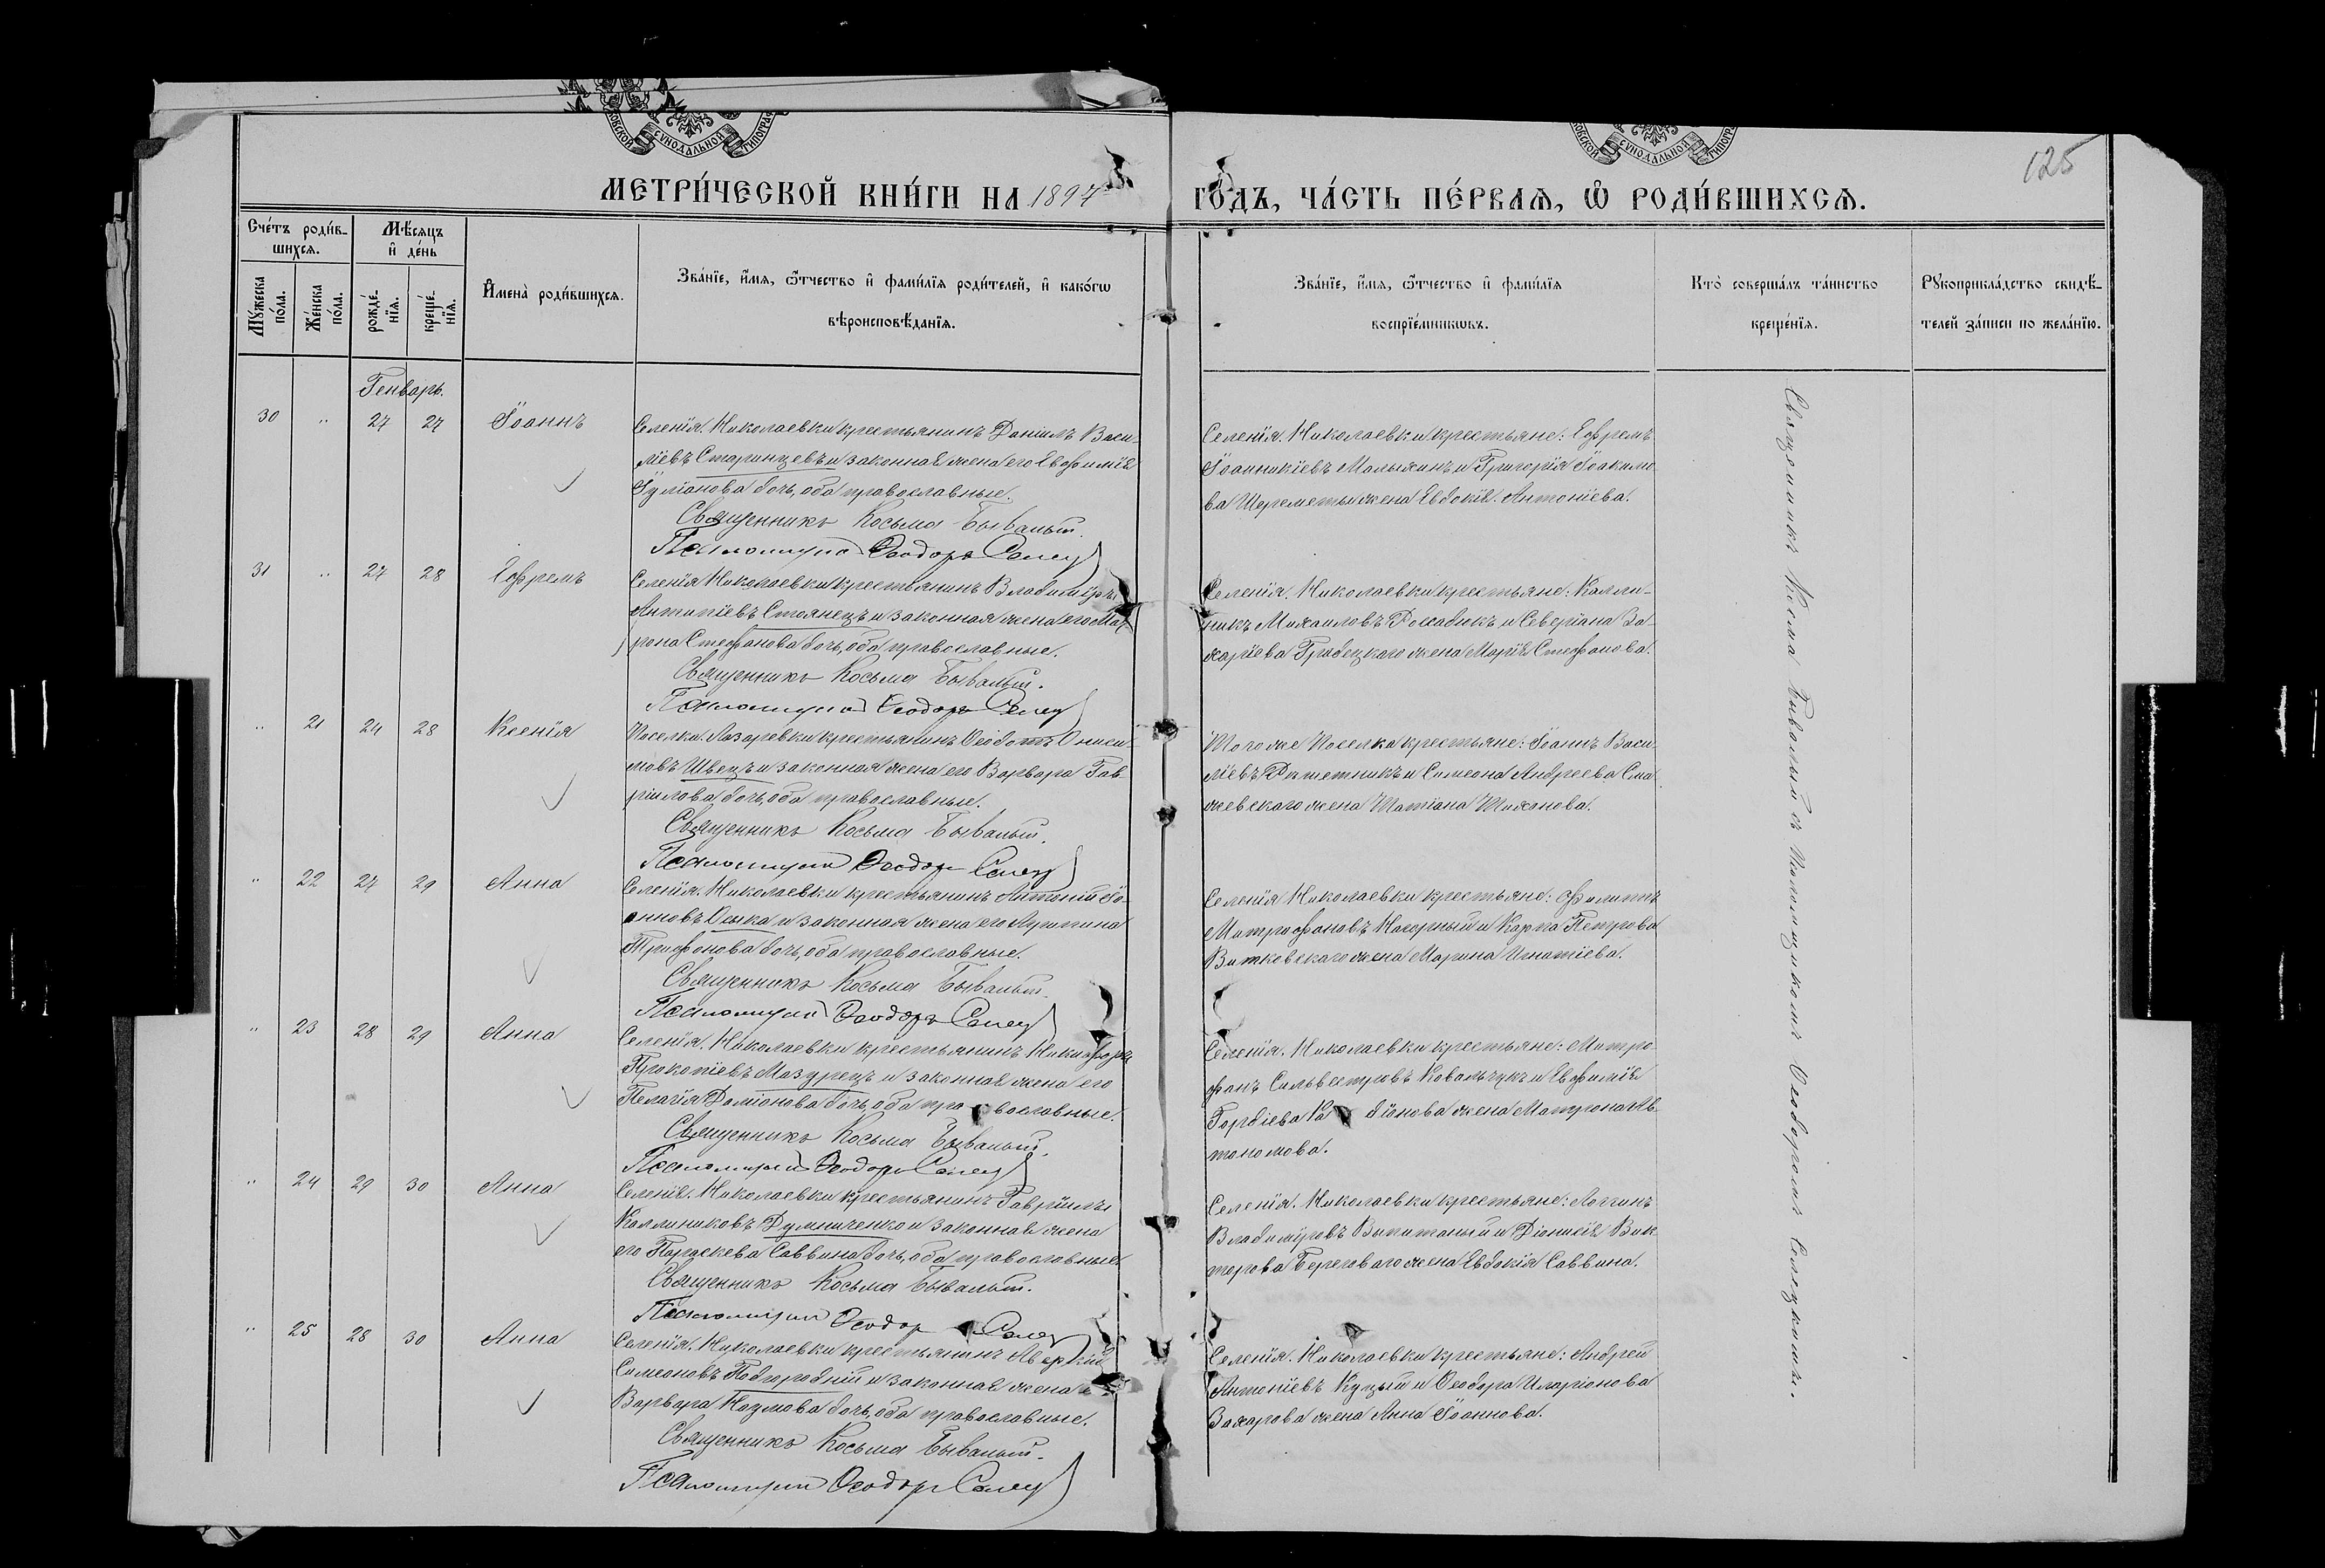 МЕТРИ́ЧЕСКОЙ КНИ́ГИ НА 1897
ГО́ДЪ, ЧА́СТЬ ПЕ́РВАѦ, Ѡ҆ РОДИ́ВШИХСѦ.
125
Сче́тъ роди́в-
шихсѧ.
Мѣ́сѧцъ
и҆ де́нь
Мꙋ́жеска
по́ла.
Же́нска
по́ла.
рожде́-
нїѧ.
креще́-
нїѧ.
И҆мена̀ роди́вшихсѧ.
Зва́нїе, и҆́мѧ, ѻ҆́тчество и҆ фами́лїѧ роди́телей, и҆ како́гѡ
вѣроисповѣ́данїѧ.
Зва́нїе, и҆́мѧ, ѻ҆́тчество и҆ фами́лїѧ
воспрїе́мникѡвъ.
Кто̀ соверша́лъ та́инство
креще́нїѧ.
Рꙋкоприкла́дство свидѣ́-
телей за́писи по жела́нїю.
Генварь.
30 " 27 27 Іоаннъ
Селенія Николаевки крестьянинъ Даніилъ Васи-
ліевъ Старинцевъ и законная жена его Евфимія
Іуліанова дочь, оба православные.
Священникъ Косьма Бывалый.
Псаломщикъ Ѳеодоръ Солец
Селенія Николаевки крестьяне: Ефремъ
Іоанникіевъ Малыжинъ и Григорія Іоакимо
ва Шереметы жена Евдокія Антоніева.
31 " 27 28 Ефремъ
Селенія Николаевки крестьянинъ Владиміръ
Антипіевъ Стоянецъ и законная жена его Мат
рона Стефанова дочь, оба православные.
Священникъ Косьма Бывалый.
Псаломщикъ Ѳеодоръ Солец
Селенія Николаевки крестьяне: Калли-
никъ Михаиловъ и Северіана За-
харіева жена Марія Стефанова.
" 21 24 28 Ксенія
Поселка Лазаревки крестьянинъ Ѳеодотъ Ониси-
мовъ Швецъ и законная жена его Варвара Гав-
ріилова дочь, оба православные.
Священникъ Косьма Бывалый.
Псаломщикъ Ѳеодоръ Солец
Того же Поселка крестьяне: Іоаннъ Васи-
ліевъ и Симеона Андреева Сма
жевскаго жена Татіана Тиханова.
" 22 27 29 Анна
Селенія Николаевки крестьянинъ Антоній Іо-
анновъ и законная жена его Агриппина
Трифонова дочь, оба православные.
Священникъ Косьма Бывалый.
Псаломщикъ Ѳеодоръ Солец
Селенія Николаевки крестьяне: Филиппъ
Митрофановъ Нагорный и Карпа Петрова
Витковскаго жена Марина Игнатіева.
" 23 28 29 Анна
Селенія Николаевки крестьянинъ Никифоръ
Прокопіевъ Мазурецъ и законная жена его
Пелагія Даміанова дочь, оба православные.
Священникъ Косьма Бывалый.
Псаломщикъ Ѳеодоръ Солец
Селенія Николаевки крестьяне: Митро-
фанъ Сильвестровъ Ковальчукъ и Евфимія
Гордіева діонова жена Матрона Ав-
тономова.
" 24 29 30 Анна
Селенія Николаевки крестьянинъ Гавріилъ
Каллиниковъ Думниченко и законная жена
его Параскева Саввина дочь, оба православные
Священникъ Косьма Бывалый.
Псаломщикъ Ѳеодоръ Солец
Селенія Николаевки крестьяне: Логгинъ
Владиміровъ и Діонисія Вик-
торова Береговаго жена Евдокія Саввина.
" 25 28 30 Анна
Селенія Николаевки крестьянинъ Аверкій
Симеоновъ Подгородній и законная жена
Варвара Наумова дочь, оба православные.
Священникъ Косьма Бывалый.
Псаломщикъ Ѳеодоръ Солец
Селенія Николаевки крестьяне: Андрей
Антоніевъ Куцый и Ѳеодора Иларіонова
Захарова жена Анна Іоаннова.
Священникъ Косма Бывалый съ Псаломщикомъ Ѳеодоромъ Солецкимъ.